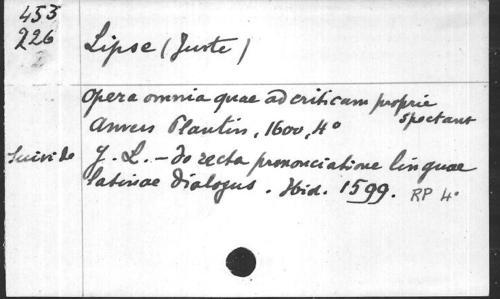 453
226
Lipse (Juste)
Opera omnia quae ad criticam proprie
spectant
Anvers Plantin, 1600, 4°
Suivi de J. L. - De recta prononciatione linguae
latinae dialogus. Ibid. 1599. RP 4°